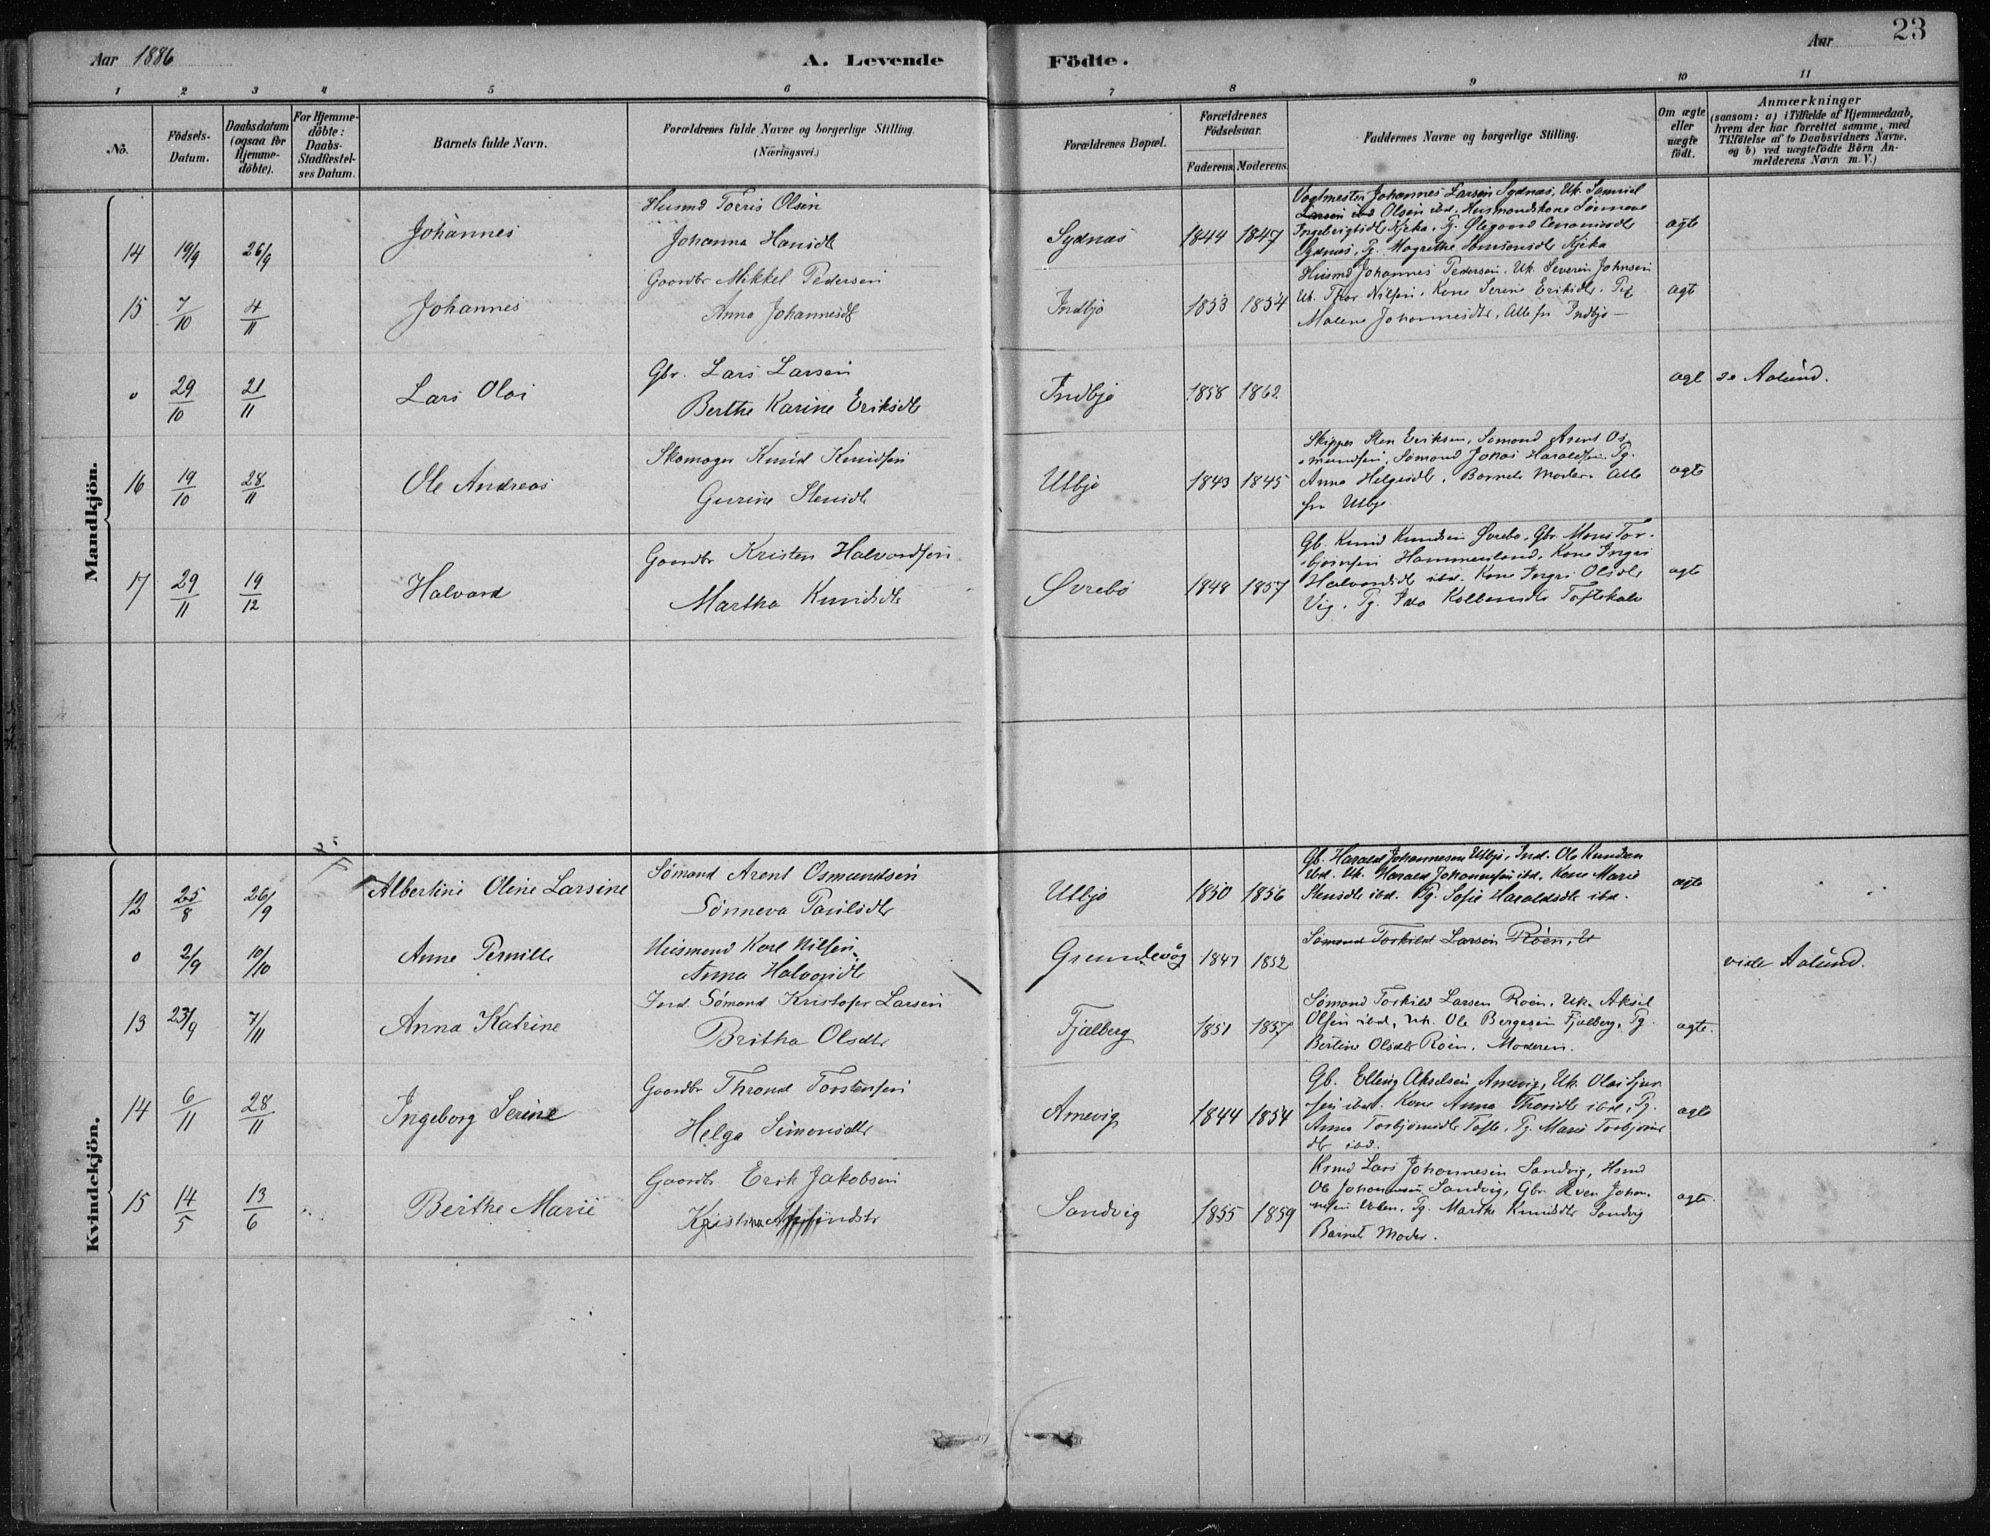 Aar 1886
A. Levende
Födte.
Aar
23
1 2 3 4 5 6 7 8 9 10 11
No.
Födsels-
Datum.
Daabsdatum
(ogsaa for
Hjemme-
döbte).
For Hjemme-
döbte:
Daabs-
Stadfæstel-
ses Datum.
Barnets fulde Navn.
Forældrenes fulde Navne og borgerlige Stilling.
(Næringsvei.)
Forældrenes Bopæl.
Forældrenes
Födselsaar.
Faderens. Moderens.
Faddernes Navne og borgerlige Stilling.
Om ægte
eller
uægte
födt.
Anmærkninger
(saasom: a) i Tilfælde af Hjemmedaab,
hvem der har forrettet samme, med
Tilföielse af to Daabsvidners Navne.
og b) ved uægtefödte Börn An-
melderens Navn m. V.)
Mandkjön.
14 19/9 26/9 Johannes
Husmd Torris Olsen
Johanna Hansdt
Sydnæs 1844 1847
Johannes Larsen Sydnæs, Uk. Samuel
Larsen ibd Olsen ibd, Husmandskone Sønneva
Ingebrigtsdt Kjeka, Pg. Ølegaard
Sydnæs, Pg. Magrethe Kjeka
ægte
15 7/10 4/11 Johannes
Gaardbr Mikkel Pedersen
Anna Johannesdt
Indbjo 1853 1854
Husmd Johannes Pedersen, Uk. Severin Johnsen
Uk. Thor Nilsen, Kone Serine Eriksdt, Pg
Malene Johannesdtr, Alle fra Indbjo
ægt
0 29/10 21/11 Lars Olai
Gbr. Lars Larsen
Berthe Karine Eriksdt
Indbjo 1858 1862
ægt se Aalund.
16 19/10 28/11 Ole Andreas
Skomager Knud Knudsen
Gurine Stensdt
Utbjo 1843 1845
Skipper Sten Eriksen, Sømand Arent Os-
mundsen, Sømand Jonas Haraldsen, Pg.
Anna Helgesdt, Barnets Moder. Alle
fra Utbjo
ægte
17 29/11 19/12 Halvard
Gaardbr Kristen Halvardsen
Martha Knudsdt
Øvrebø 1848 1857
Gb. Knud Knudsen Øvrebø, Gbr Mons Tor-
bjørnsen Hammersland, Kone Ingri
Halvardsdt ibd. Kone Ingri Olsdtr
Vig, Pg. Ida Kolbensdtr Toftekalv
ægte
Kvindekjön.
12 25/8 26/9 Albertine Oline Larsine
Sømand Arent Osmundsen
Sønneva Paulsdtr
Utbjo 1850 1856
Gb. Harald Johannesen Utbjo, Ind. Ole Knudsen
ibd. Uk. Harald Johannesen ibd, Kone Marie
Stensdtr ibd. Pg. Sofie Haraldsdtr ibd.
ægte
0 2/9 10/10 Anne Pernille
Husmand Karl Nilsen
Anna Halvorsdt
Grundevåg 1847 1852
Sømand Torkild Larsen Røen, U
vide Aalund.
13 23/9 7/11 Anna Katrine
Ind. Sømand Kristofer Larsen
Britha Olsdtr
Fjælberg 1851 1857
Sømand Torkild Larsen Røen, Uk. Aksel
Olsen ibd, Uk. Ole Bergesen Fjælberg, Pg.
Bertine Olsdtr Røen, Moderen.
ægte.
14 6/11 28/11 Ingeborg Serine
Gaardbr Thrond Torstensen
Helga Simonsdtr
Arnevig 1844 1854
Gb. Elling Akselsen Arnevig, Uk. Olai Sjur-
sen ibd. Kone Anna Thorsdt ibd, Pg.
Anna Torbjørnsdt Tofte, Pg. Marie Torbjørns
dt ibd.
ægte
15 14/5 13/6 Berthe Marie
Gaardbr. Erik Jakobsen
Kristina
Sandvig 1855 1859
Husmd Lars Johannesen Sandvig, Husmd
Ole Johannesen Sandvig, Gbr Sven Johan-
nesen, Pg. Marthe Knudsdtr Sandvig
Barnets Moder.
ægte.